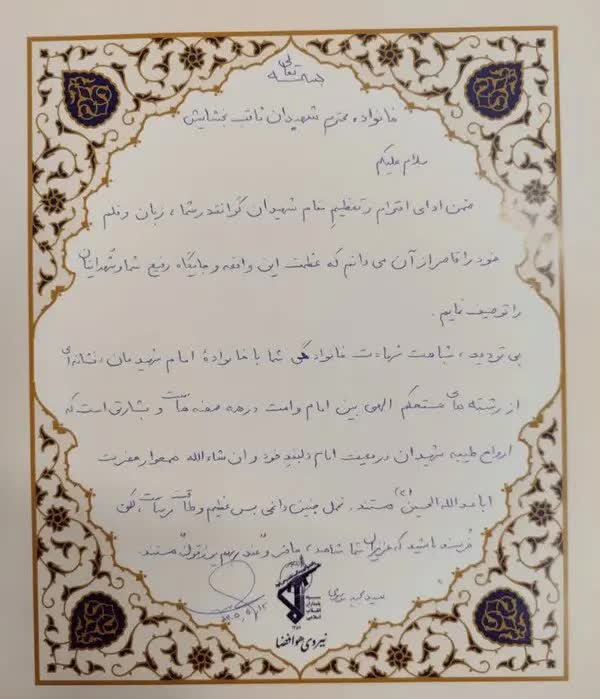 بسمه تعالی
خانواده محترم شهیدان ثاقب بخشایش
سلام علیکم
ضمن ادای احترام و تعظیم مقام شهیدان گرانقدر شما، زبان و قلم
خود را قاصر از آن می دانم که عظمت این واقعه و جایگاه رفیع شما و شهدایتان
را توصیف نمایم.
بی تردید، شباهت شهادت خانوادگی شما با خانوادهٔ امام شهیدمان، نشانه ای
از رشته های مستحکم الهی بین امام و امت در همه صحنه هاست و بشارتی است که
ارواح طیبه شهیدان در معیت امام دلبند خود و ان شاءالله همجوار حضرت
اباعبدالله الحسین (ع) هستند. تحمل چنین داغی بس عظیم و طاقت فرساست، لکن
خُرسند باشید که عزیزان شما شاهد، حاضر و "عند ربهم یرزقون" هستند.
سید مجید
سپاه پاسداران انقلاب اسلامی
۱۳۵۷
نیروی هوافضا